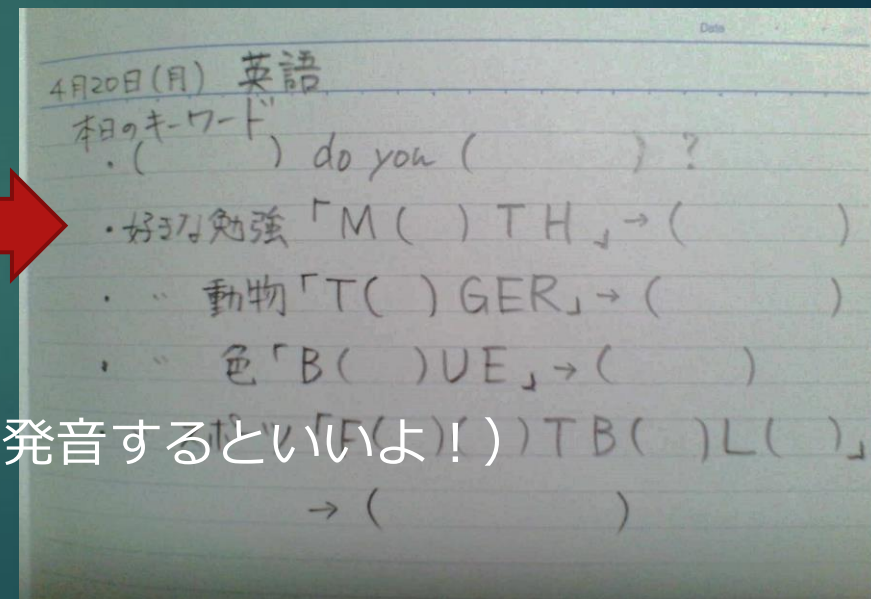 Date
4月20日(月) 英語
本日のキーワード
・( ) do you ( )?
・好きな勉強「M( )TH」→( )
・〃 動物「T( )GER」→( )
・〃 色「B( )UE」→( )
「F( )( )TB( )L( )」
発音するといいよ!)
→( )